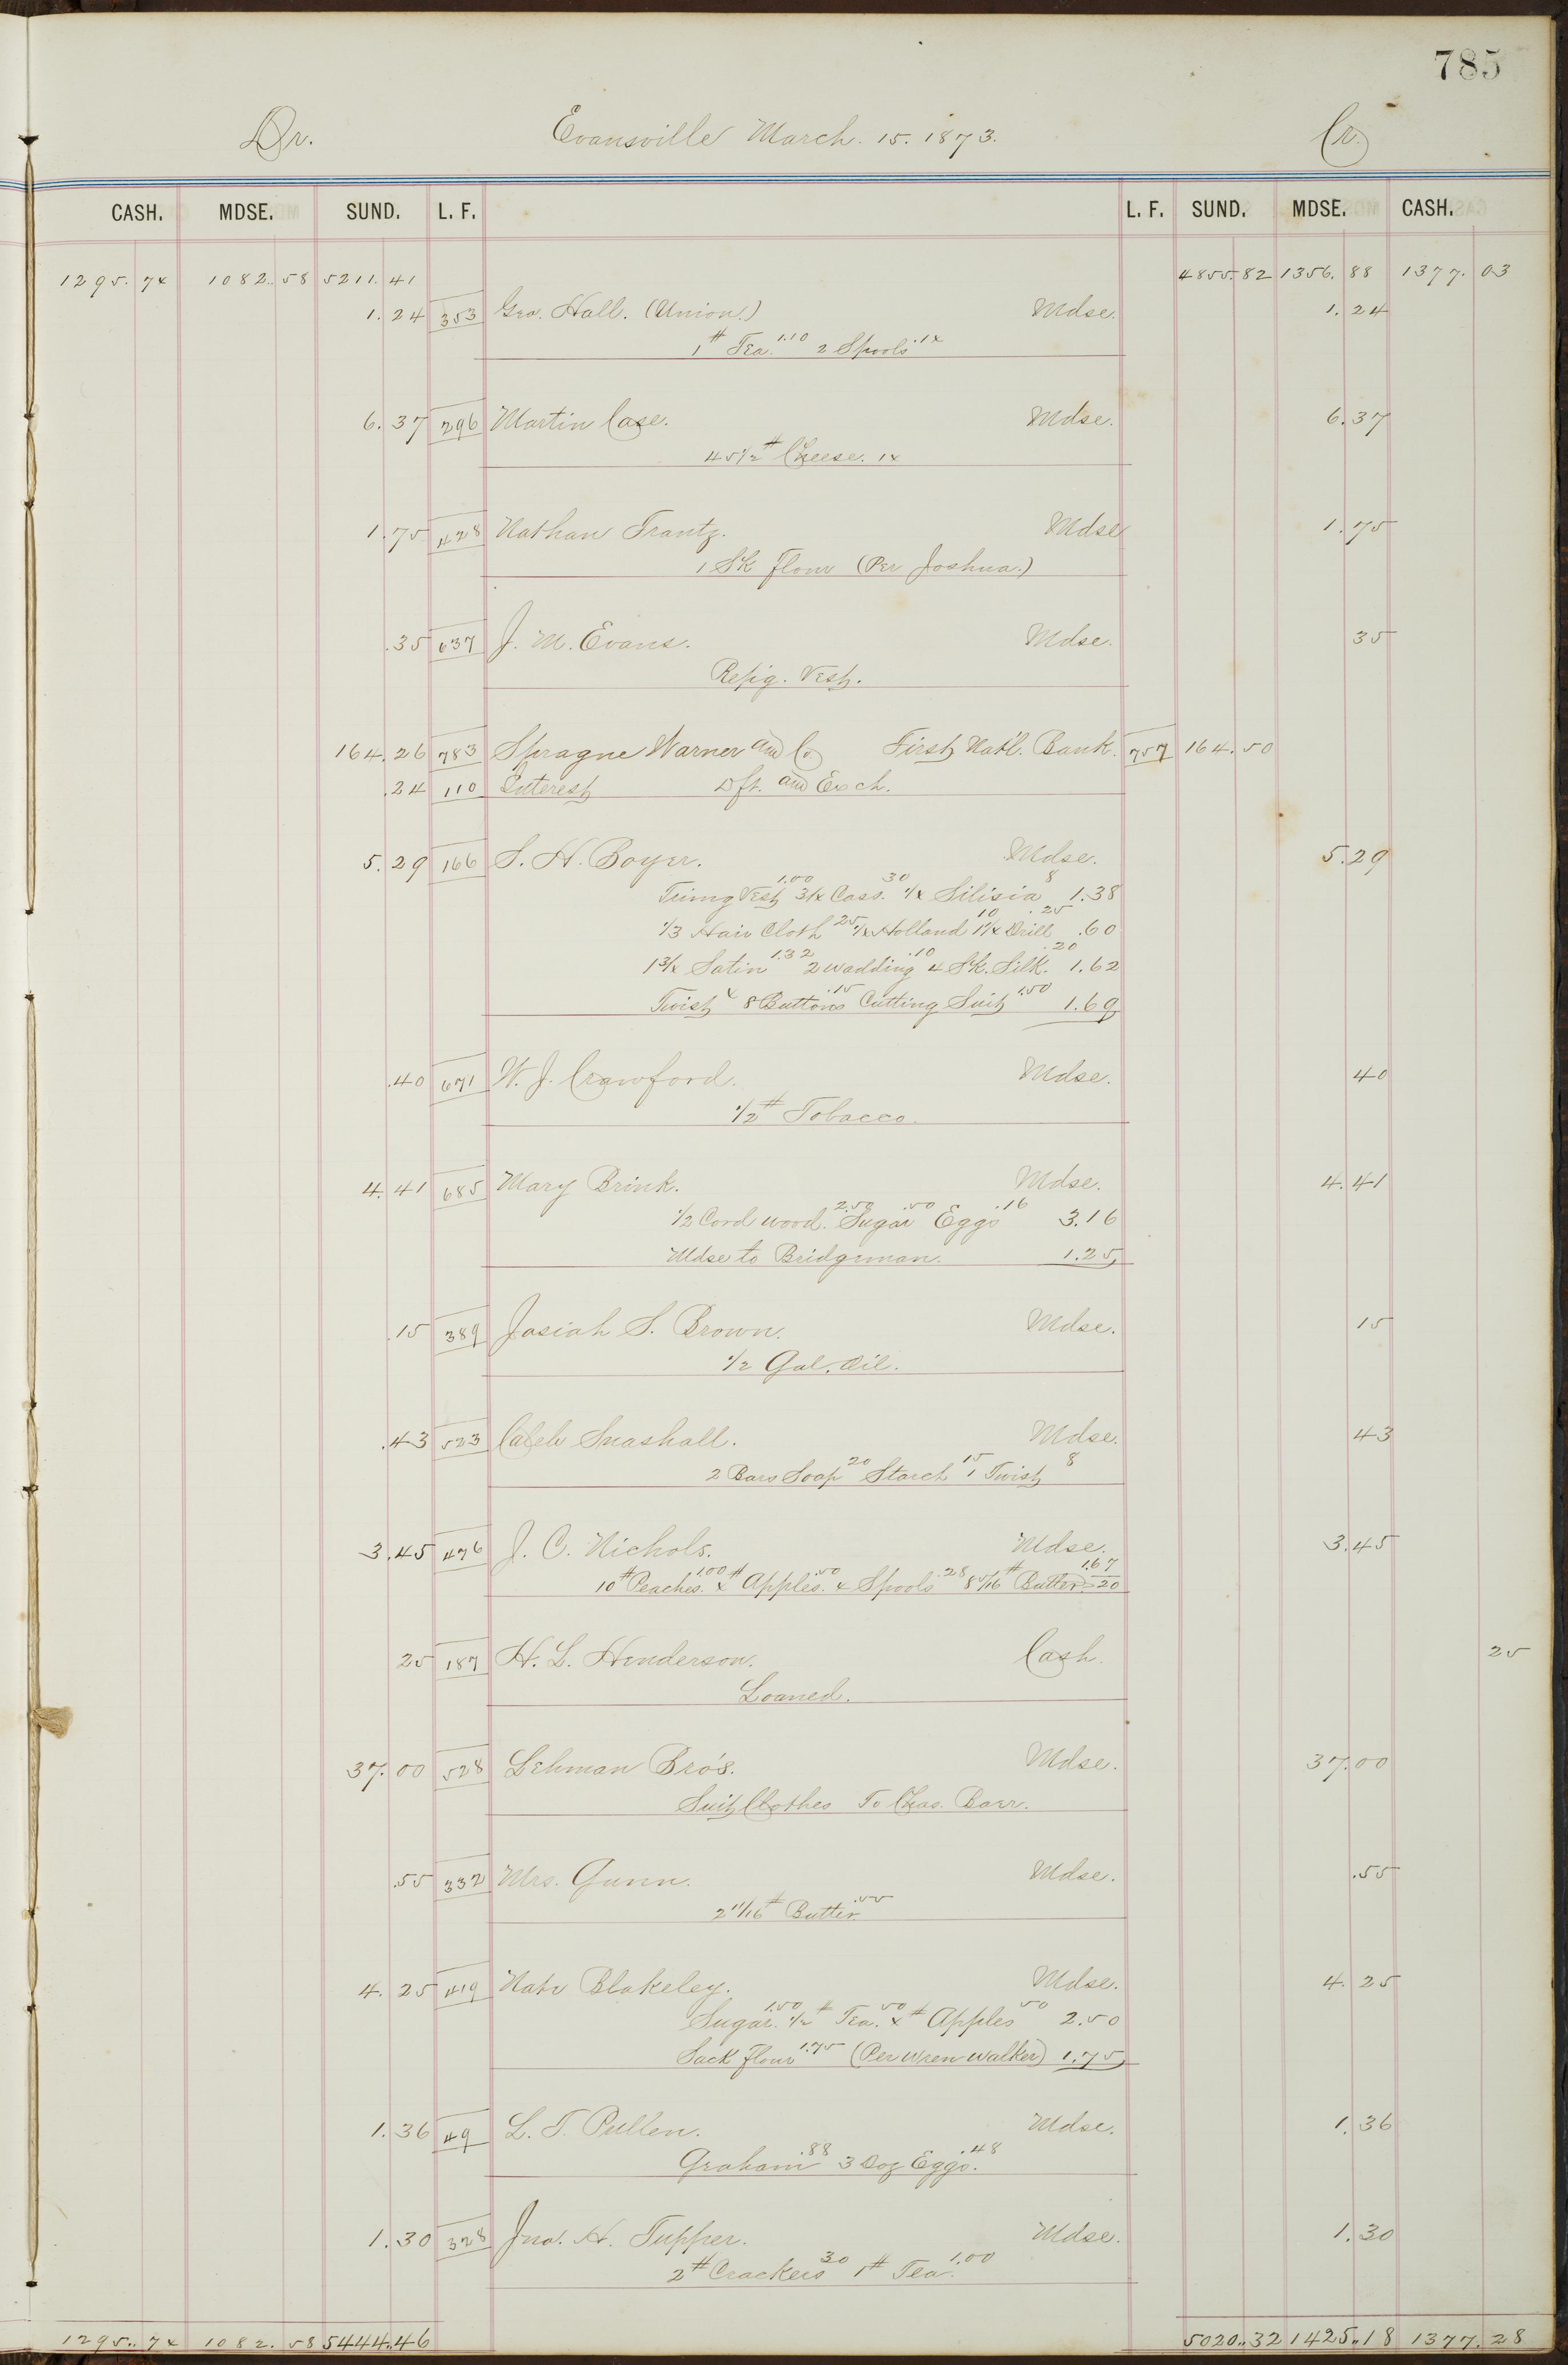 785
Dr. Evansville March. 15. 1873. Cr.
CASH. MDSE. SUND. L. F. L. F. SUND. MDSE. CASH.
1295. 74 1082. 58 5211. 41 4855. 82 1356. 88 1377. 03
1. 24 353 Geo. Hall. (Union.) Mdse. 1. 24
1 # Tea. 1.10 2 Spools .14
6. 37 296 Martin Case. Mdse. 6. 37
45 1/2 # Cheese. 14
1. 75 428 Nathan Frantz. Mdse 1. 75
1 Sk Flour (Per Joshua.)
.35 637 J. M. Evans. Mdse. 35
Repig. Vest.
164. 26 783 Sprague Warner and Co. First Nat'l. Bank. 757 164. 50
.24 110 Interest Dft. and Exch.
5. 29 166 S. H. Boyer. Mdse. 5. 29
Trimg Vest 1.00 3/4 Cass. 30 1/4 Silisia 8 1.38
1/3 Hair Cloth 25 1/4 Holland 10 1 1/4 Drill .25 .60
1 3/4 Satin 1.32 2 wadding .10 4 Sk. Silk. .20 1.62
Twist 4 8 Buttons .15 Cutting Suit 1.50 1.69
.40 671 W. J. Crawford. Mdse. 40
1/2 # Tobacco.
4. 41 685 Mary Brink. Mdse. 4. 41
1/2 Cord wood. 2.50 Sugar .50 Eggs .16 3.16
Mdse to Bridgman. 1.25
.15 389 Josiah S. Brown. Mdse. 15
1/2 Gal. Oil.
.43 523 Caleb Snashall. Mdse. 43
2 Bars Soap 20 Starch 15 1 Twist 8
3. 45 476 J. C. Nichols. Mdse. 3. 45
10 # Peaches. 1.00 4 # Apples. .50 4 Spools .28 8 5/16 # Butter. 1.67 20
25 187 H. L. Henderson. Cash. 25
Loaned.
37. 00 528 Lehman Bro's. Mdse. 37. 00
Suit Clothes To Chas. Barr.
.55 332 Mrs. Gunn. Mdse. .55
2 11/16 # Butter .55
4. 25 419 Nate Blakeley. Mdse. 4. 25
Sugar. 1.50 1/2 # Tea. 50 4 # Apples 50 2.50
Sack flour 1.75 (Per Wren Walker) 1.75
1. 36 49 L. T. Pullen. Mdse. 1. 36
Graham .88 3 Doz Eggs. .48
1. 30 328 Jno. H. Tupper. Mdse. 1. 30
2 # Crackers 30 1 # Tea. 1.00
1295. 74 1082. 58 5444. 46 5020. 32 1425. 18 1377. 28